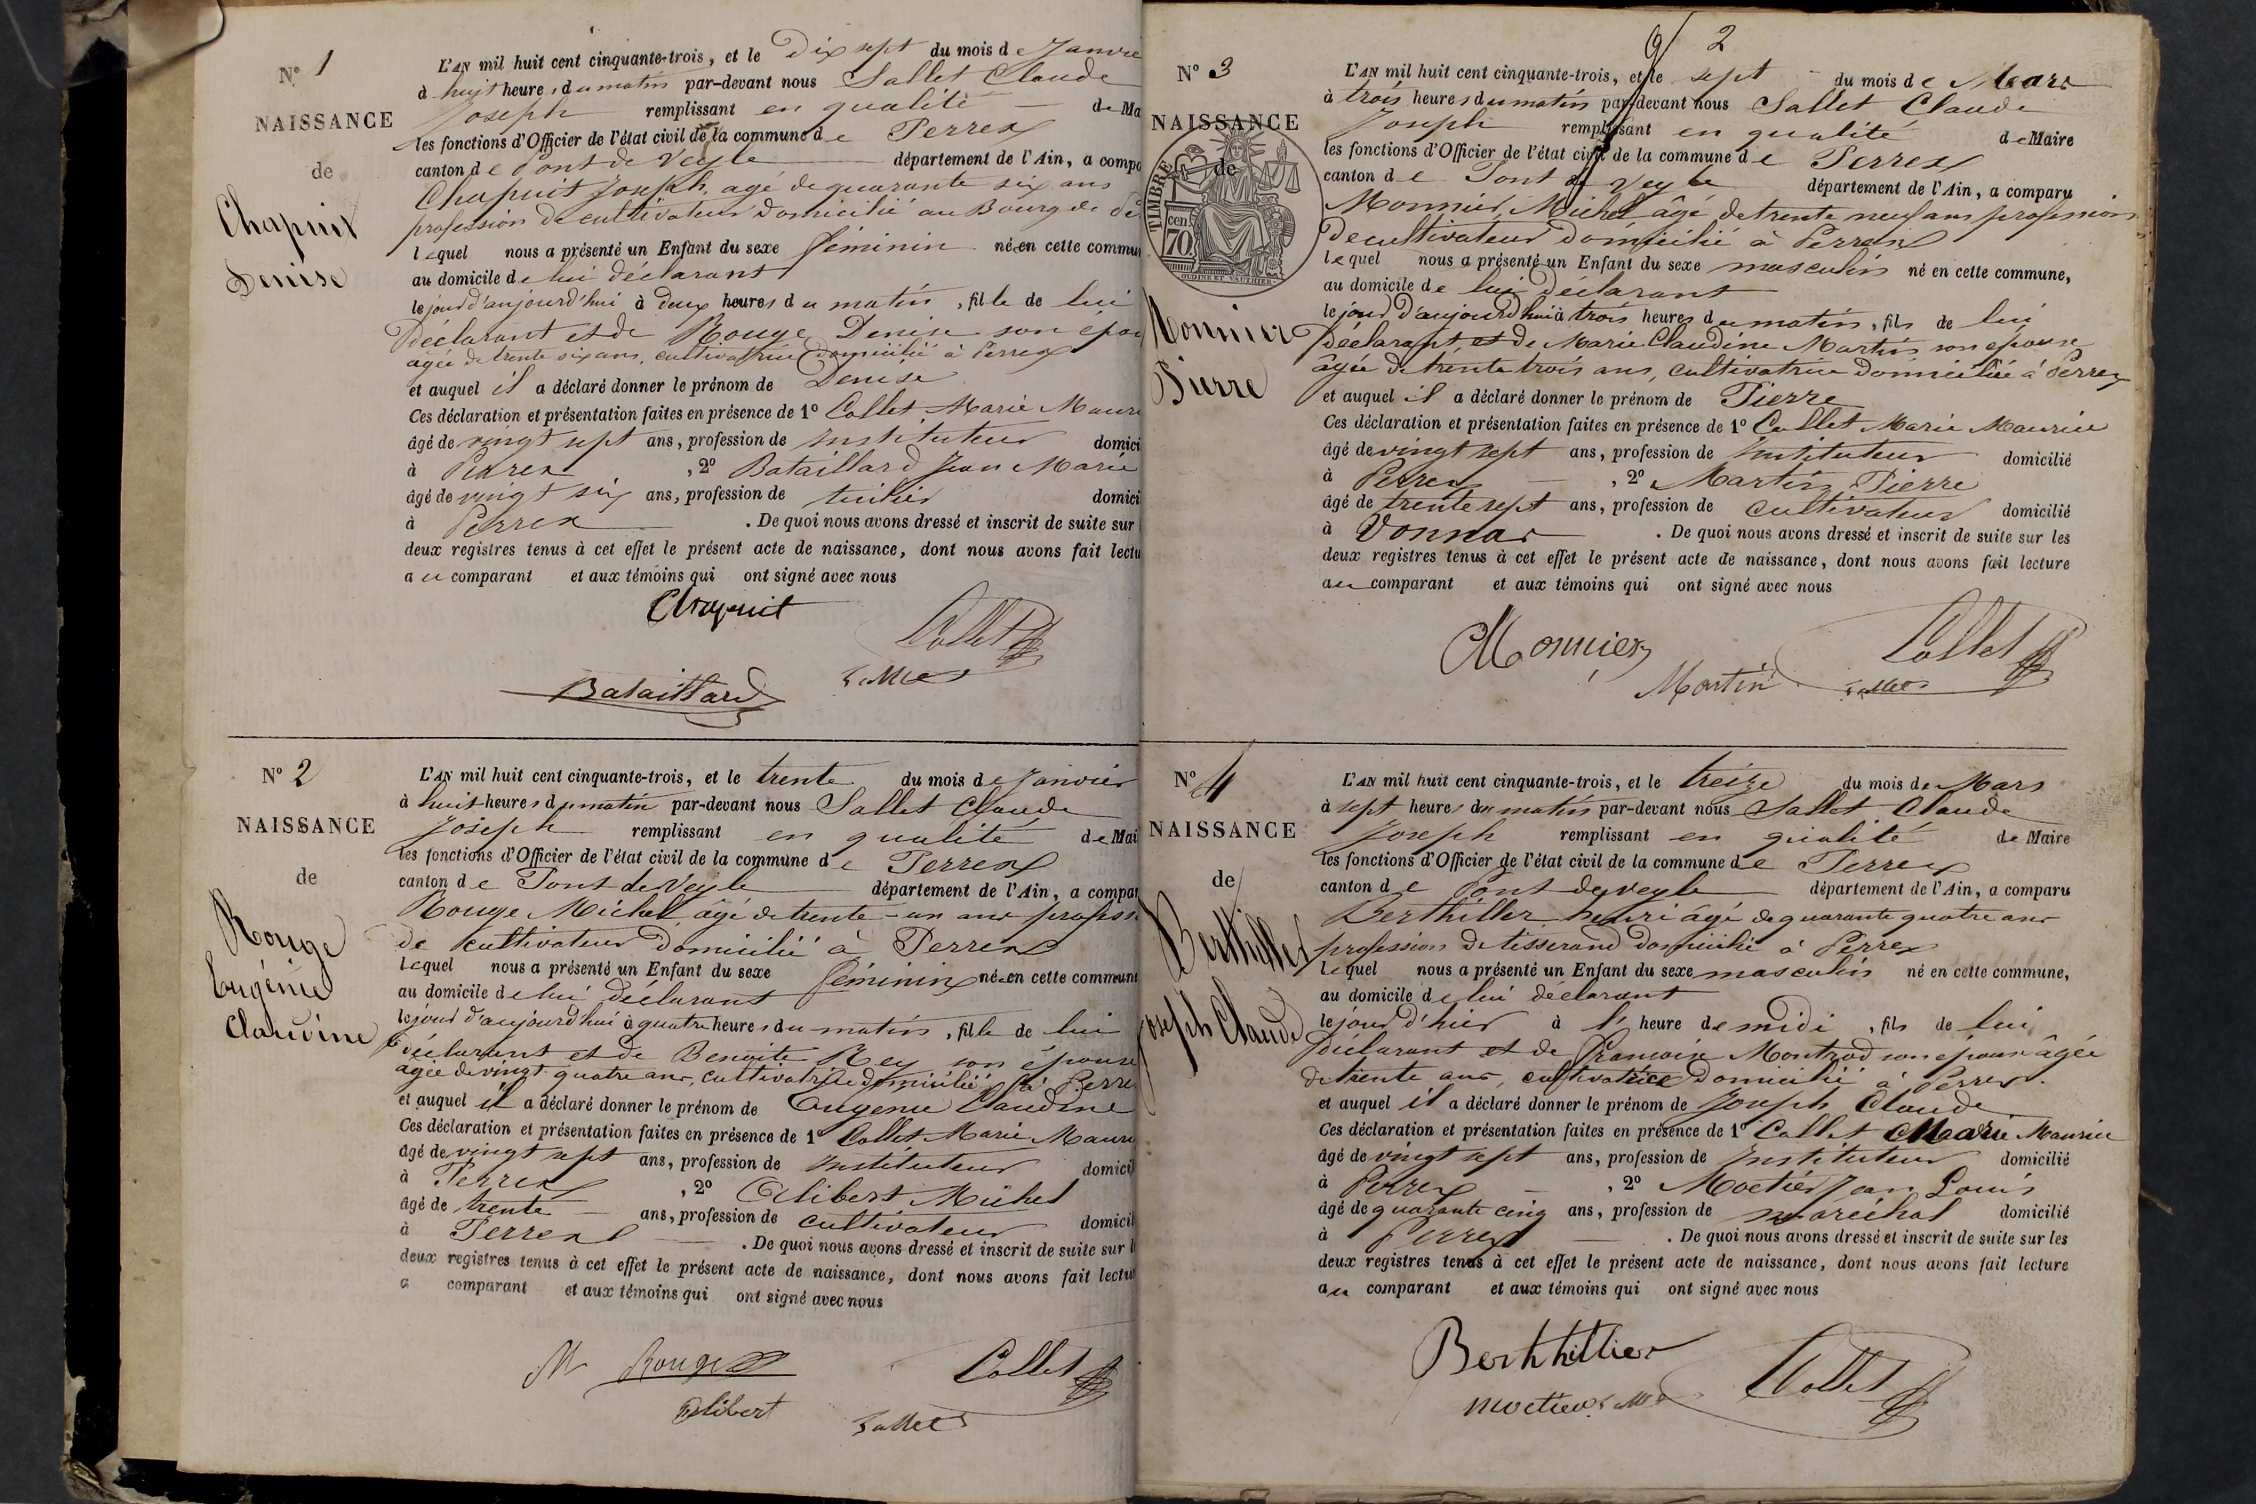 N° 1
NAISSANCE
de
Chapuit
Denise
L'AN mil huit cent cinquante-trois, et le Dix sept du mois de Janvie
à huit heures du matin par-devant nous Sallet Claude
Joseph remplissant en qualité de Ma
les fonctions d'Officier de l'état civil de la commune de Perrex
canton de Pont de Veyle département de l'Ain, a compa
Chapuit Joseph, agé de quarante six ans
profession de cultivateur domicilié au Bourg de
lequel nous a présenté un Enfant du sexe féminin née en cette commun
au domicile de lui déclarant
le jour d'aujourd'hui à deux heures du matin, fille de lui
Déclarant et de Rouge Denise son épou
agée de trente six ans, cultivatrice domicilié à Perrex
et auquel il a déclaré donner le prénom de Denise
Ces déclaration et présentation faites en présence de 1° Collet Marie Mauri
âgé de vingt sept ans, profession de Instituteur domici
à Perrex , 2° Bataillard Jean Marie
âgé de vingt six ans, profession de domici
à Perrex . De quoi nous avons dressé et inscrit de suite sur
deux registres tenus à cet effet le présent acte de naissance, dont nous avons fait lectu
au comparant et aux témoins qui ont signé avec nous
Chapuit
Collet
Bataillard
Sallet
N° 2
NAISSANCE
de
Rouge
Eugénie
Claudine
L'AN mil huit cent cinquante-trois, et le trente du mois de Janvier
à huit heures du matin par-devant nous Sallet Claude
Joseph remplissant en qualité de Mai
les fonctions d'Officier de l'état civil de la commune de Perrex
canton de Pont de Veyle département de l'Ain, a compar
Rouge Michel âgé de trente-un ans profess
de cultivateur domicilié à Perrex
Lequel nous a présenté un Enfant du sexe féminin née en cette commune
au domicile de lui déclarant
le jour d'aujourd'hui à quatre heures du matin, fille de lui
déclarant et de Benoite Rey son épouse
agée de vingt quatre ans, cultivatrice domicilié à Perre
et auquel il a déclaré donner le prénom de Eugénie Claudine
Ces déclaration et présentation faites en présence de 1° Collet Marie Mauri
âgé de vingt sept ans, profession de Instituteur domicil
à Perrex , 2° Alibert Michel
âgé de trente ans, profession de cultivateur domicil
à Perrex . De quoi nous avons dressé et inscrit de suite sur l
deux registres tenus à cet effet le présent acte de naissance, dont nous avons fait lectur
a comparant et aux témoins qui ont signé avec nous
M Rouge
Collet
Alibert
Sallet
2
N° 3
NAISSANCE
de
TIMBRE
70 cen
OUDINÉ ET VAUTHIER
Monnier
Pierre
L'AN mil huit cent cinquante-trois, et le sept du mois de Mars
à trois heures du matin par-devant nous Sallet Claude
Joseph remplissant en qualité de Maire
les fonctions d'Officier de l'état civil de la commune de Perrex
canton de Pont de Veyle département de l'Ain, a comparu
Monnier Michel âgé de trente neuf ans profession
De cultivateur domicilié à Perrex
Lequel nous a présenté un Enfant du sexe masculin né en cette commune,
au domicile de lui déclarant
le jour d'aujourd'hui à trois heures du matin, fils de lui
déclarant, et de Marie Claudine Martin son épouse
âgée de trente trois ans, cultivatrice domiciliée à Perrex
et auquel il a déclaré donner le prénom de Pierre
Ces déclaration et présentation faites en présence de 1° Collet Marie Maurice
âgé de vingt sept ans, profession de instituteur domicilié
à Perrex , 2° Martin Pierre
âgé de trente sept ans, profession de cultivateur domicilié
à Vonnas . De quoi nous avons dressé et inscrit de suite sur les
deux registres tenus à cet effet le présent acte de naissance, dont nous avons fait lecture
au comparant et aux témoins qui ont signé avec nous
Monnier
Collet
Martin
Sallet
N° 4
NAISSANCE
de
Berthillet
Joseph Claude
L'AN mil huit cent cinquante-trois, et le treize du mois de Mars
à sept heures du matin par-devant nous Sallet Claude
Joseph remplissant en qualité de Maire
les fonctions d'Officier de l'état civil de la commune de Perrex
canton de Pont de veyle département de l'Ain, a comparu
Berthillier henri âgé de quarante quatre ans
profession de tisserand domicilié à Perrex
Lequel nous a présenté un Enfant du sexe masculin né en cette commune,
au domicile de lui déclarant
le jour d'hier à l' heure de midi, fils de lui
Déclarant et de françoise Montrod son épouse âgée
de trente ans, cultivatrice domicilié à Perrex.
et auquel il a déclaré donner le prénom de Joseph Claude
Ces déclaration et présentation faites en présence de 1° Collet Marie Maurice
âgé de vingt sept ans, profession de Instituteur domicilié
à Perrex , 2° Moctier Jean Louis
âgé de quarante cinq ans, profession de maréchal domicilié
à Perrex . De quoi nous avons dressé et inscrit de suite sur les
deux registres tenus à cet effet le présent acte de naissance, dont nous avons fait lecture
au comparant et aux témoins qui ont signé avec nous
Berthillier
Collet
moctier